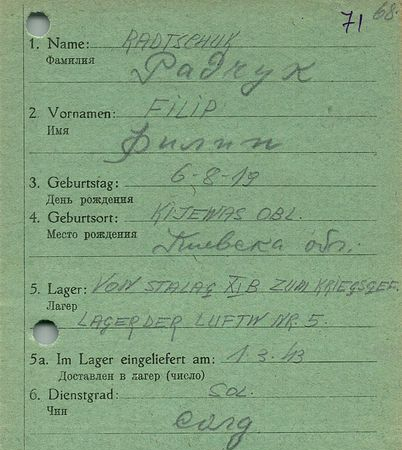 71 68.
1. Name: RADTSCHUK
Фамилия Радчук
2. Vornamen: FILIP
Имя Филип
3. Geburtstag: 6-8-19
День рождения
4. Geburtsort: KIJEWAS OBL.
Место рождения Киевска обл.
5. Lager: VON STALAG XIB ZUM KRIEGSGEF.
Лагер
LAGER DER LUFTW NR. 5.
5a. Im Lager eingeliefert am: 1.3.43
Доставлен в лагер (число)
6. Dienstgrad: SOL.
Чин Солд